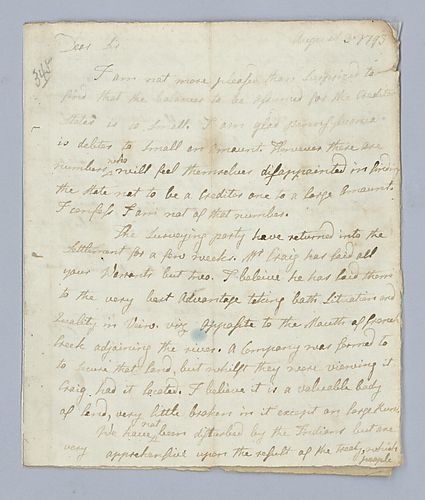 Dear Sir August 3. 1793
345
I am not more pleased than surprized to
find that the balances to be assumed for the Creditor
States is so small. I am glad Pennsylvania
is debtor to small an amount. However there are
numbers who will feel themselves disappointed in finding
the State not to be a Creditor one to a large amount.
I confess I am not of that number.
The surveying party have returned into the
Settlement for a few weeks. Mr Craig has laid all
your Warrants but two. I beleive he has laid them
to the very best advantage taking both Situation and
Quality in View. viz opposite to the Mouth of French
Creek adjoining the river. A Company was formed to
to secure that land, but whilst they were viewing it
Craig had it located. I believe it is a valuable body
of land, very little broken in it except on large Runs.
We have not been disturbed by the Indians but are
very apprehensive upon the result of the treaty, which
people